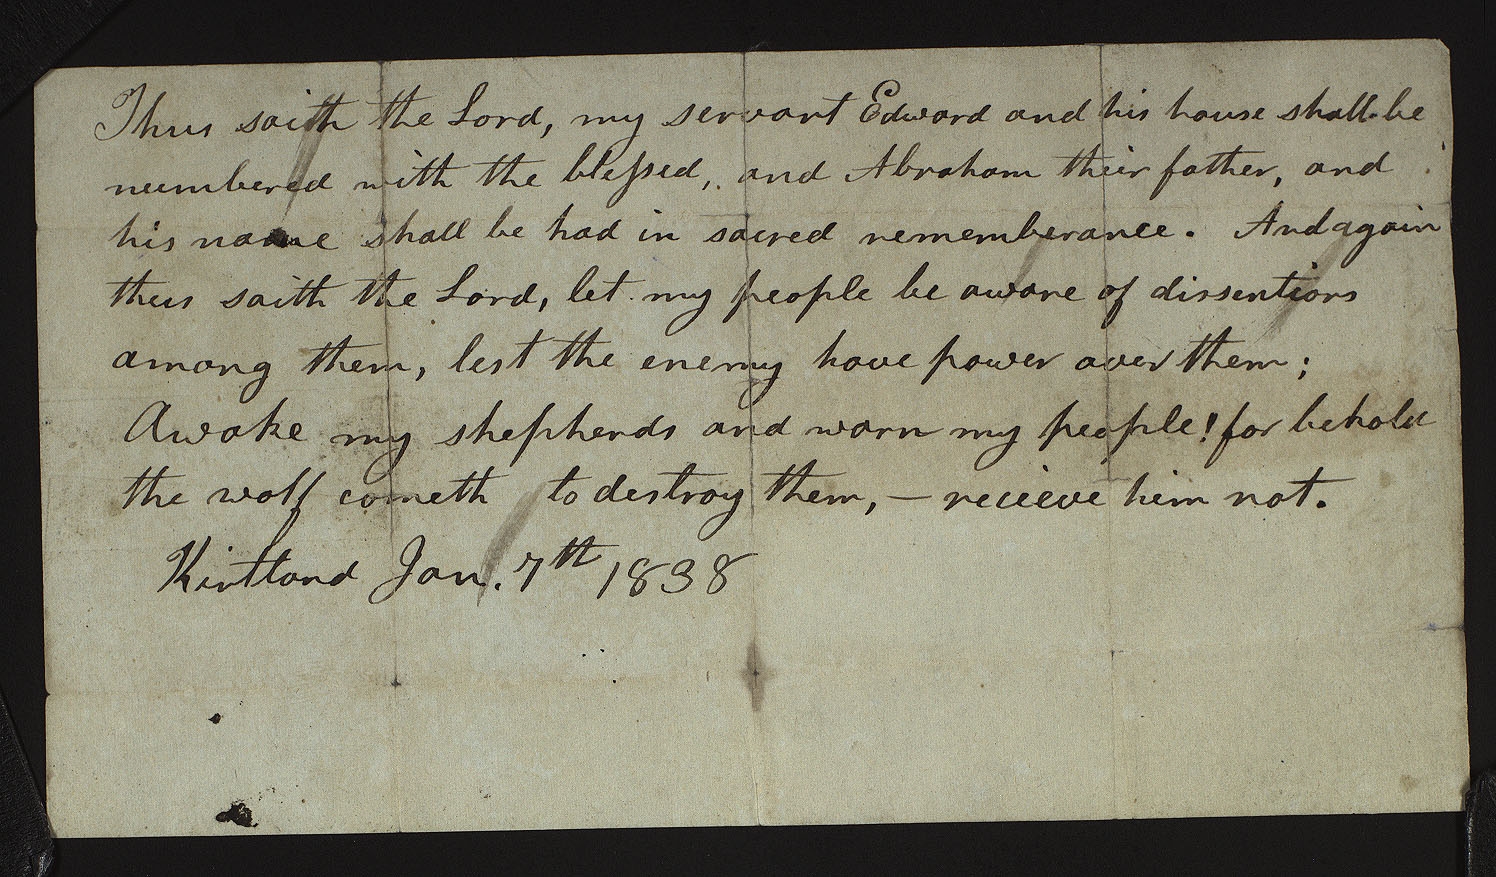 Thus saith the Lord, my servant Edward and his house shall be
numbered with the blessed, and Abraham their father, and
his name shall be had in sacred rememberance. And again
thus saith the Lord, let my people be aware of dissentions
among them, lest the enemy have power over them;
Awake my shepherds and warn my people! for behold
the wolf cometh to destroy them, — recieve him not.
Kirtland Jan. 7th 1838